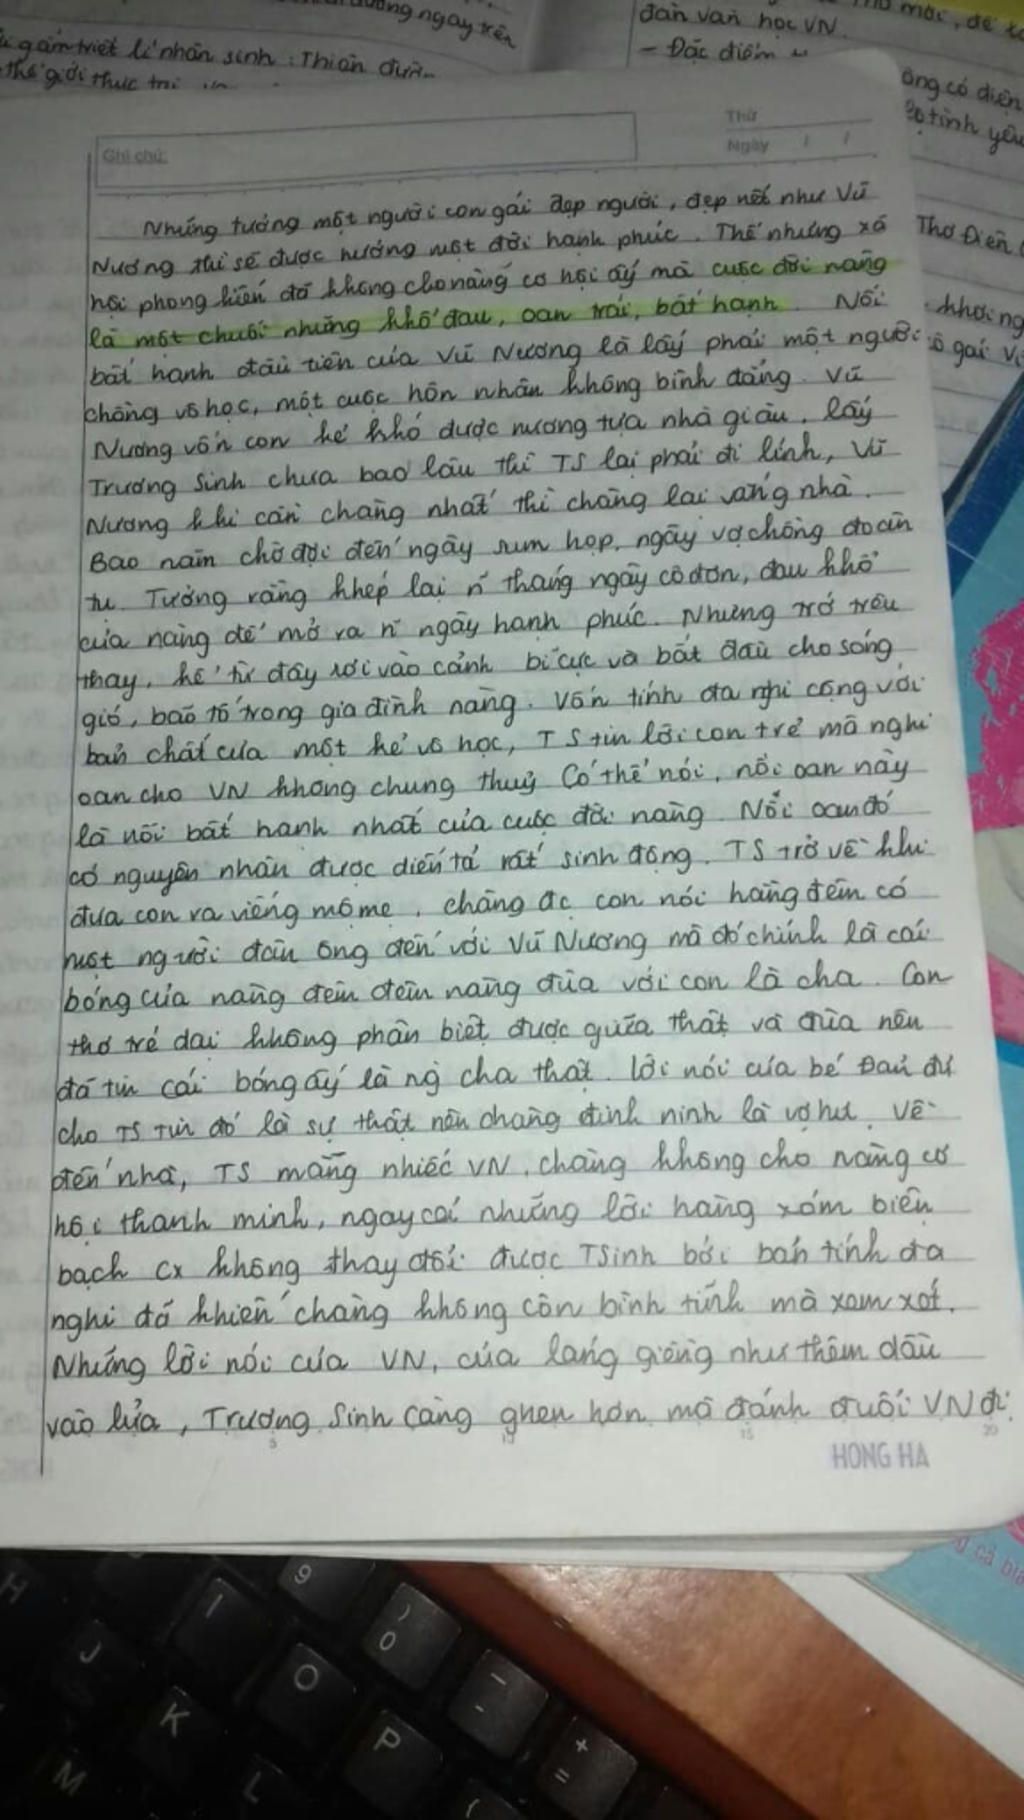 dương ngay trên
gắm triết lí nhân sinh : Thiên đườn
thế giới thực tại
đàn văn học VN
- Đặc điểm
mới, để
ông có diện
tình yêu
Thơ Điên
khơi ng
cô gái Vĩ
Ghi chú:
Thứ
Ngày / /
Những tưởng một người con gái đẹp người, đẹp nết như Vũ
Nương thì sẽ được hưởng một đời hạnh phúc. Thế nhưng xã
hội phong kiến đã không cho nàng cơ hội ấy mà cuộc đời nàng
là một chuỗi những khổ đau, oan trái, bất hạnh. Nỗi
bất hạnh đầu tiên của Vũ Nương là lấy phải một người
chồng vô học, một cuộc hôn nhân không bình đẳng. Vũ
Nương vốn con kẻ khó được nương tựa nhà giàu. Lấy
Trương Sinh chưa bao lâu thì TS lại phải đi lính, Vũ
Nương khi cần chàng nhất thì chàng lại vắng nhà.
Bao năm chờ đợi đến ngày sum họp, ngày vợ chồng đoàn
tụ. Tưởng rằng khép lại n~ tháng ngày cô đơn, đau khổ
của nàng để mở ra n~ ngày hạnh phúc. Nhưng trớ trêu
thay, kể từ đây rơi vào cảnh bi cực và bắt đầu cho sóng
gió, bão tố trong gia đình nàng. Vốn tính đa nghi cộng với
bản chất của một kẻ vô học, TS tin lời con trẻ mà nghi
oan cho VN không chung thuỷ Có thể nói, nỗi oan này
là nỗi bất hạnh nhất của cuộc đời nàng. Nỗi oan đó
có nguyên nhân được diễn tả rất sinh động. TS trở về khi
đưa con ra viếng mộ mẹ, chàng đc con nói hằng đêm có
một người đàn ông đến với Vũ Nương mà đó chính là cái
bóng của nàng đêm đêm nàng đùa với con là cha. Con
thơ trẻ dại không phân biệt được giữa thật và đùa nên
đã tin cái bóng ấy là ng cha thật. Lời nói của bé Đản đủ
cho TS tin đó là sự thật nên chàng đinh ninh là vợ hư. Về
đến nhà, TS mắng nhiếc VN, chàng không cho nàng cơ
hội thanh minh, ngay cả những lời hàng xóm biện
bạch cx không thay đổi được TSinh bởi bản tính đa
nghi đã khiến chàng không còn bình tĩnh mà xem xét.
Những lời nói của VN, của láng giềng như thêm dầu
vào lửa, Trương Sinh càng ghen hơn mà đánh đuổi VN đi.
5 15 20
HONG HA
H J K L M I O P 9 ) 0 _ - + =